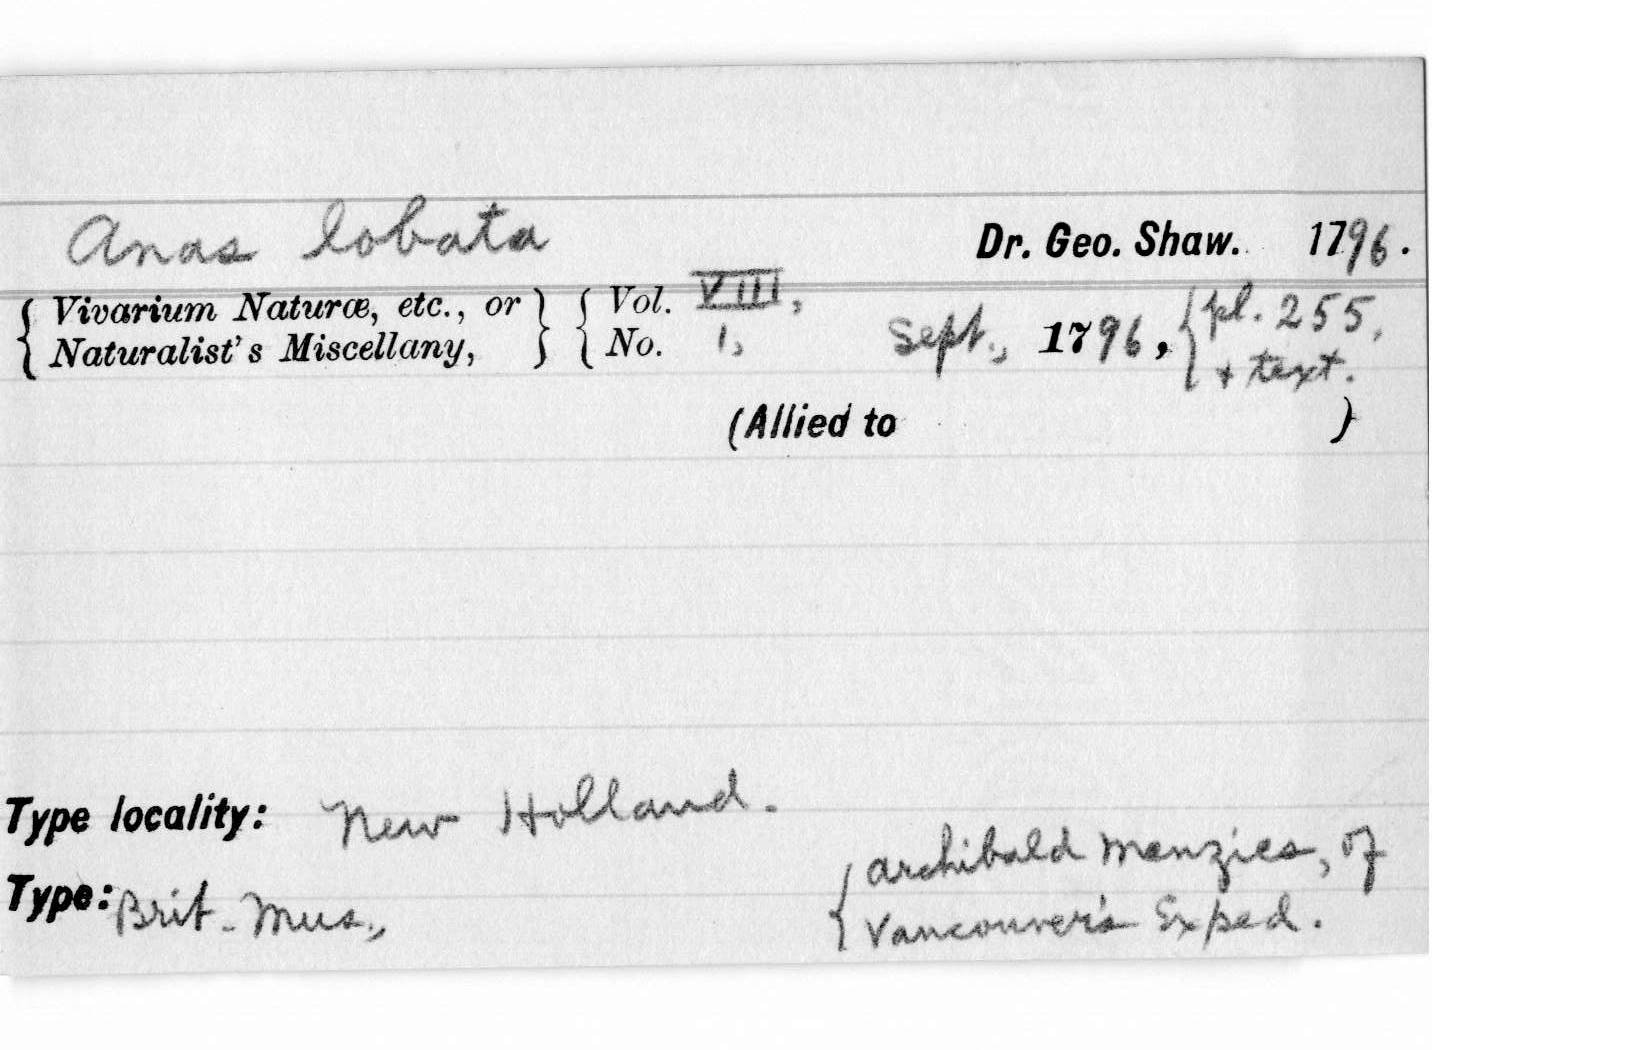 Anas lobata Dr. Geo. Shaw. 1796.
{ Vivarium Naturæ, etc., or } { Vol. VIII, { pl. 255,
{ Naturalist's Miscellany, } { No. 1, Sept., 1796, { + text.
(Allied to )
Type locality: New Holland.
{ Archibald Menzies, of
Type: Brit. Mus., { Vancouver's Exped.